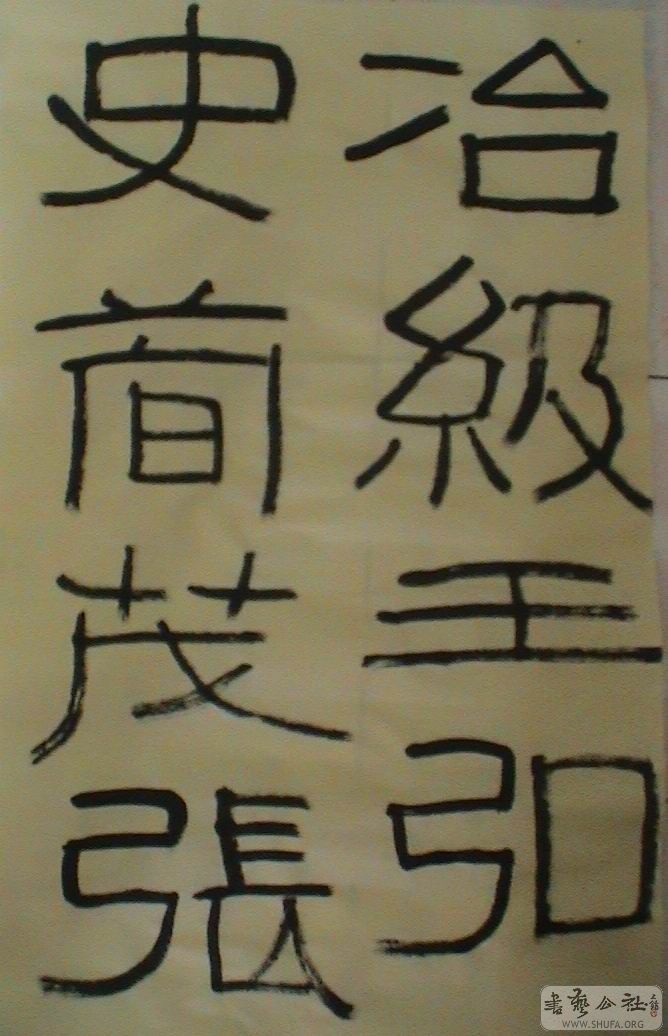 冶級王弘
史荀茂張
書藝公社
WWW.SHUFA.ORG